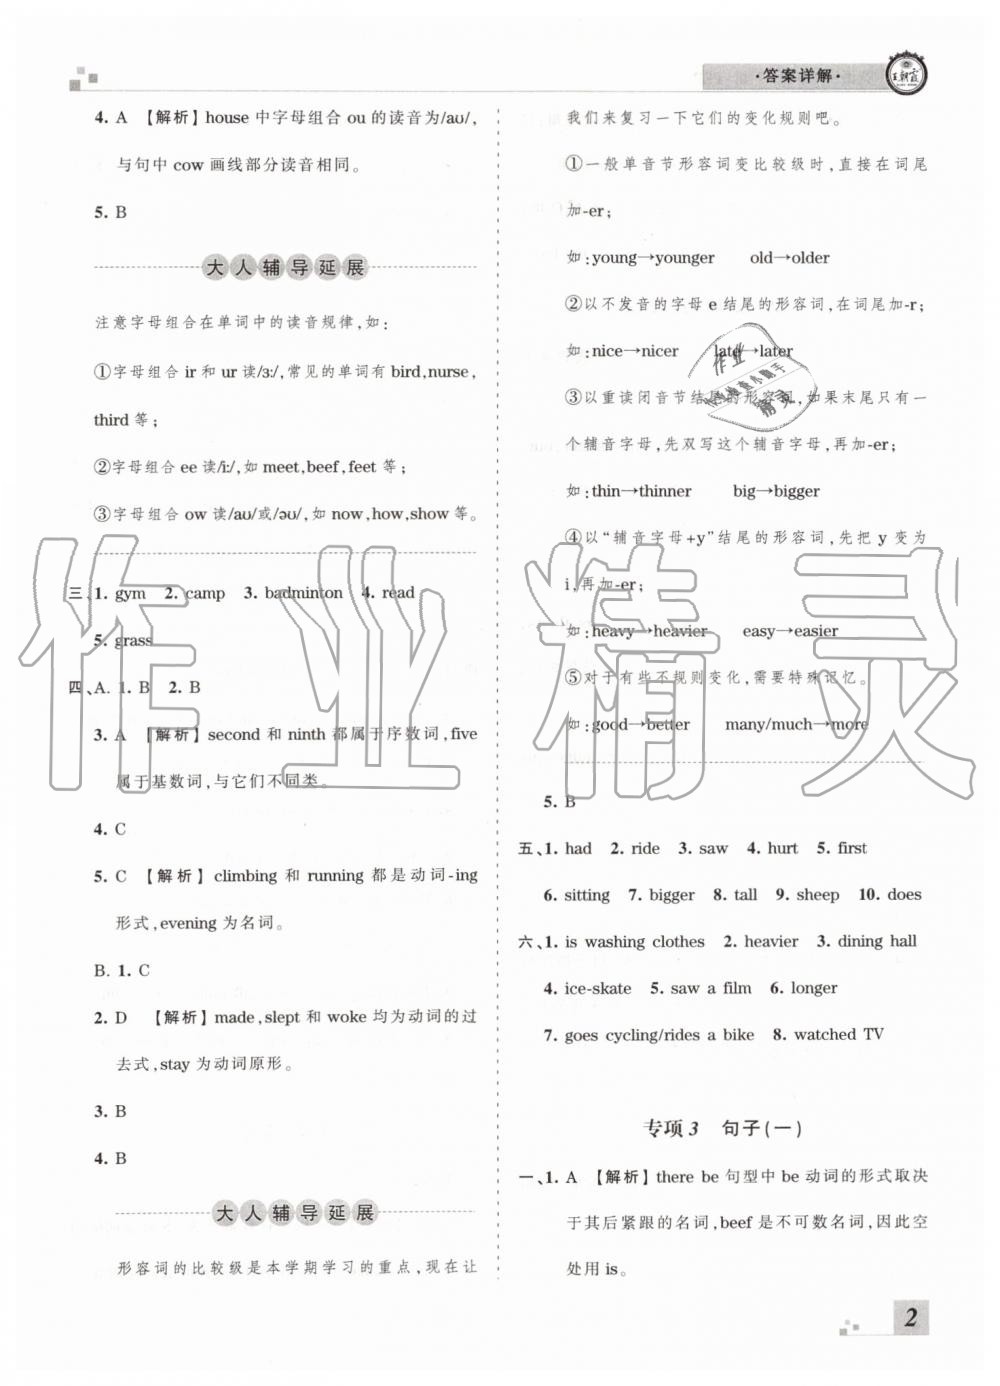 ·答案详解·
王朝霞
4. A 【解析】house 中字母组合 ou 的读音为/aʊ/,
与句中 cow 画线部分读音相同。
5. B
大人辅导延展
注意字母组合在单词中的读音规律,如:
①字母组合 ir 和 ur 读/ɜ:/,常见的单词有 bird,nurse,
third 等;
②字母组合 ee 读/i:/,如 meet,beef,feet 等;
③字母组合 ow 读/aʊ/或/əʊ/,如 now,how,show 等。
三、1. gym 2. camp 3. badminton 4. read
5. grass
四、A. 1. B 2. B
3. A 【解析】second 和 ninth 都属于序数词,five
属于基数词,与它们不同类。
4. C
5. C 【解析】climbing 和 running 都是动词-ing
形式,evening 为名词。
B. 1. C
2. D 【解析】made,slept 和 woke 均为动词的过
去式,stay 为动词原形。
3. B
4. B
大人辅导延展
形容词的比较级是本学期学习的重点,现在让
我们来复习一下它们的变化规则吧。
①一般单音节形容词变比较级时,直接在词尾
加-er;
如:young→younger old→older
②以不发音的字母 e 结尾的形容词,在词尾加-r;
如:nice→nicer late→later
③以重读闭音节结尾的形容词,如果末尾只有一
个辅音字母,先双写这个辅音字母,再加-er;
如:thin→thinner big→bigger
④以“辅音字母+y”结尾的形容词,先把 y 变为
i,再加-er;
如:heavy→heavier easy→easier
⑤对于有些不规则变化,需要特殊记忆。
如:good→better many/much→more
5. B
五、1. had 2. ride 3. saw 4. hurt 5. first
6. sitting 7. bigger 8. tall 9. sheep 10. does
六、1. is washing clothes 2. heavier 3. dining hall
4. ice-skate 5. saw a film 6. longer
7. goes cycling/rides a bike 8. watched TV
专项 3 句子(一)
一、1. A 【解析】there be 句型中 be 动词的形式取决
于其后紧跟的名词,beef 是不可数名词,因此空
处用 is。
2
作业精灵